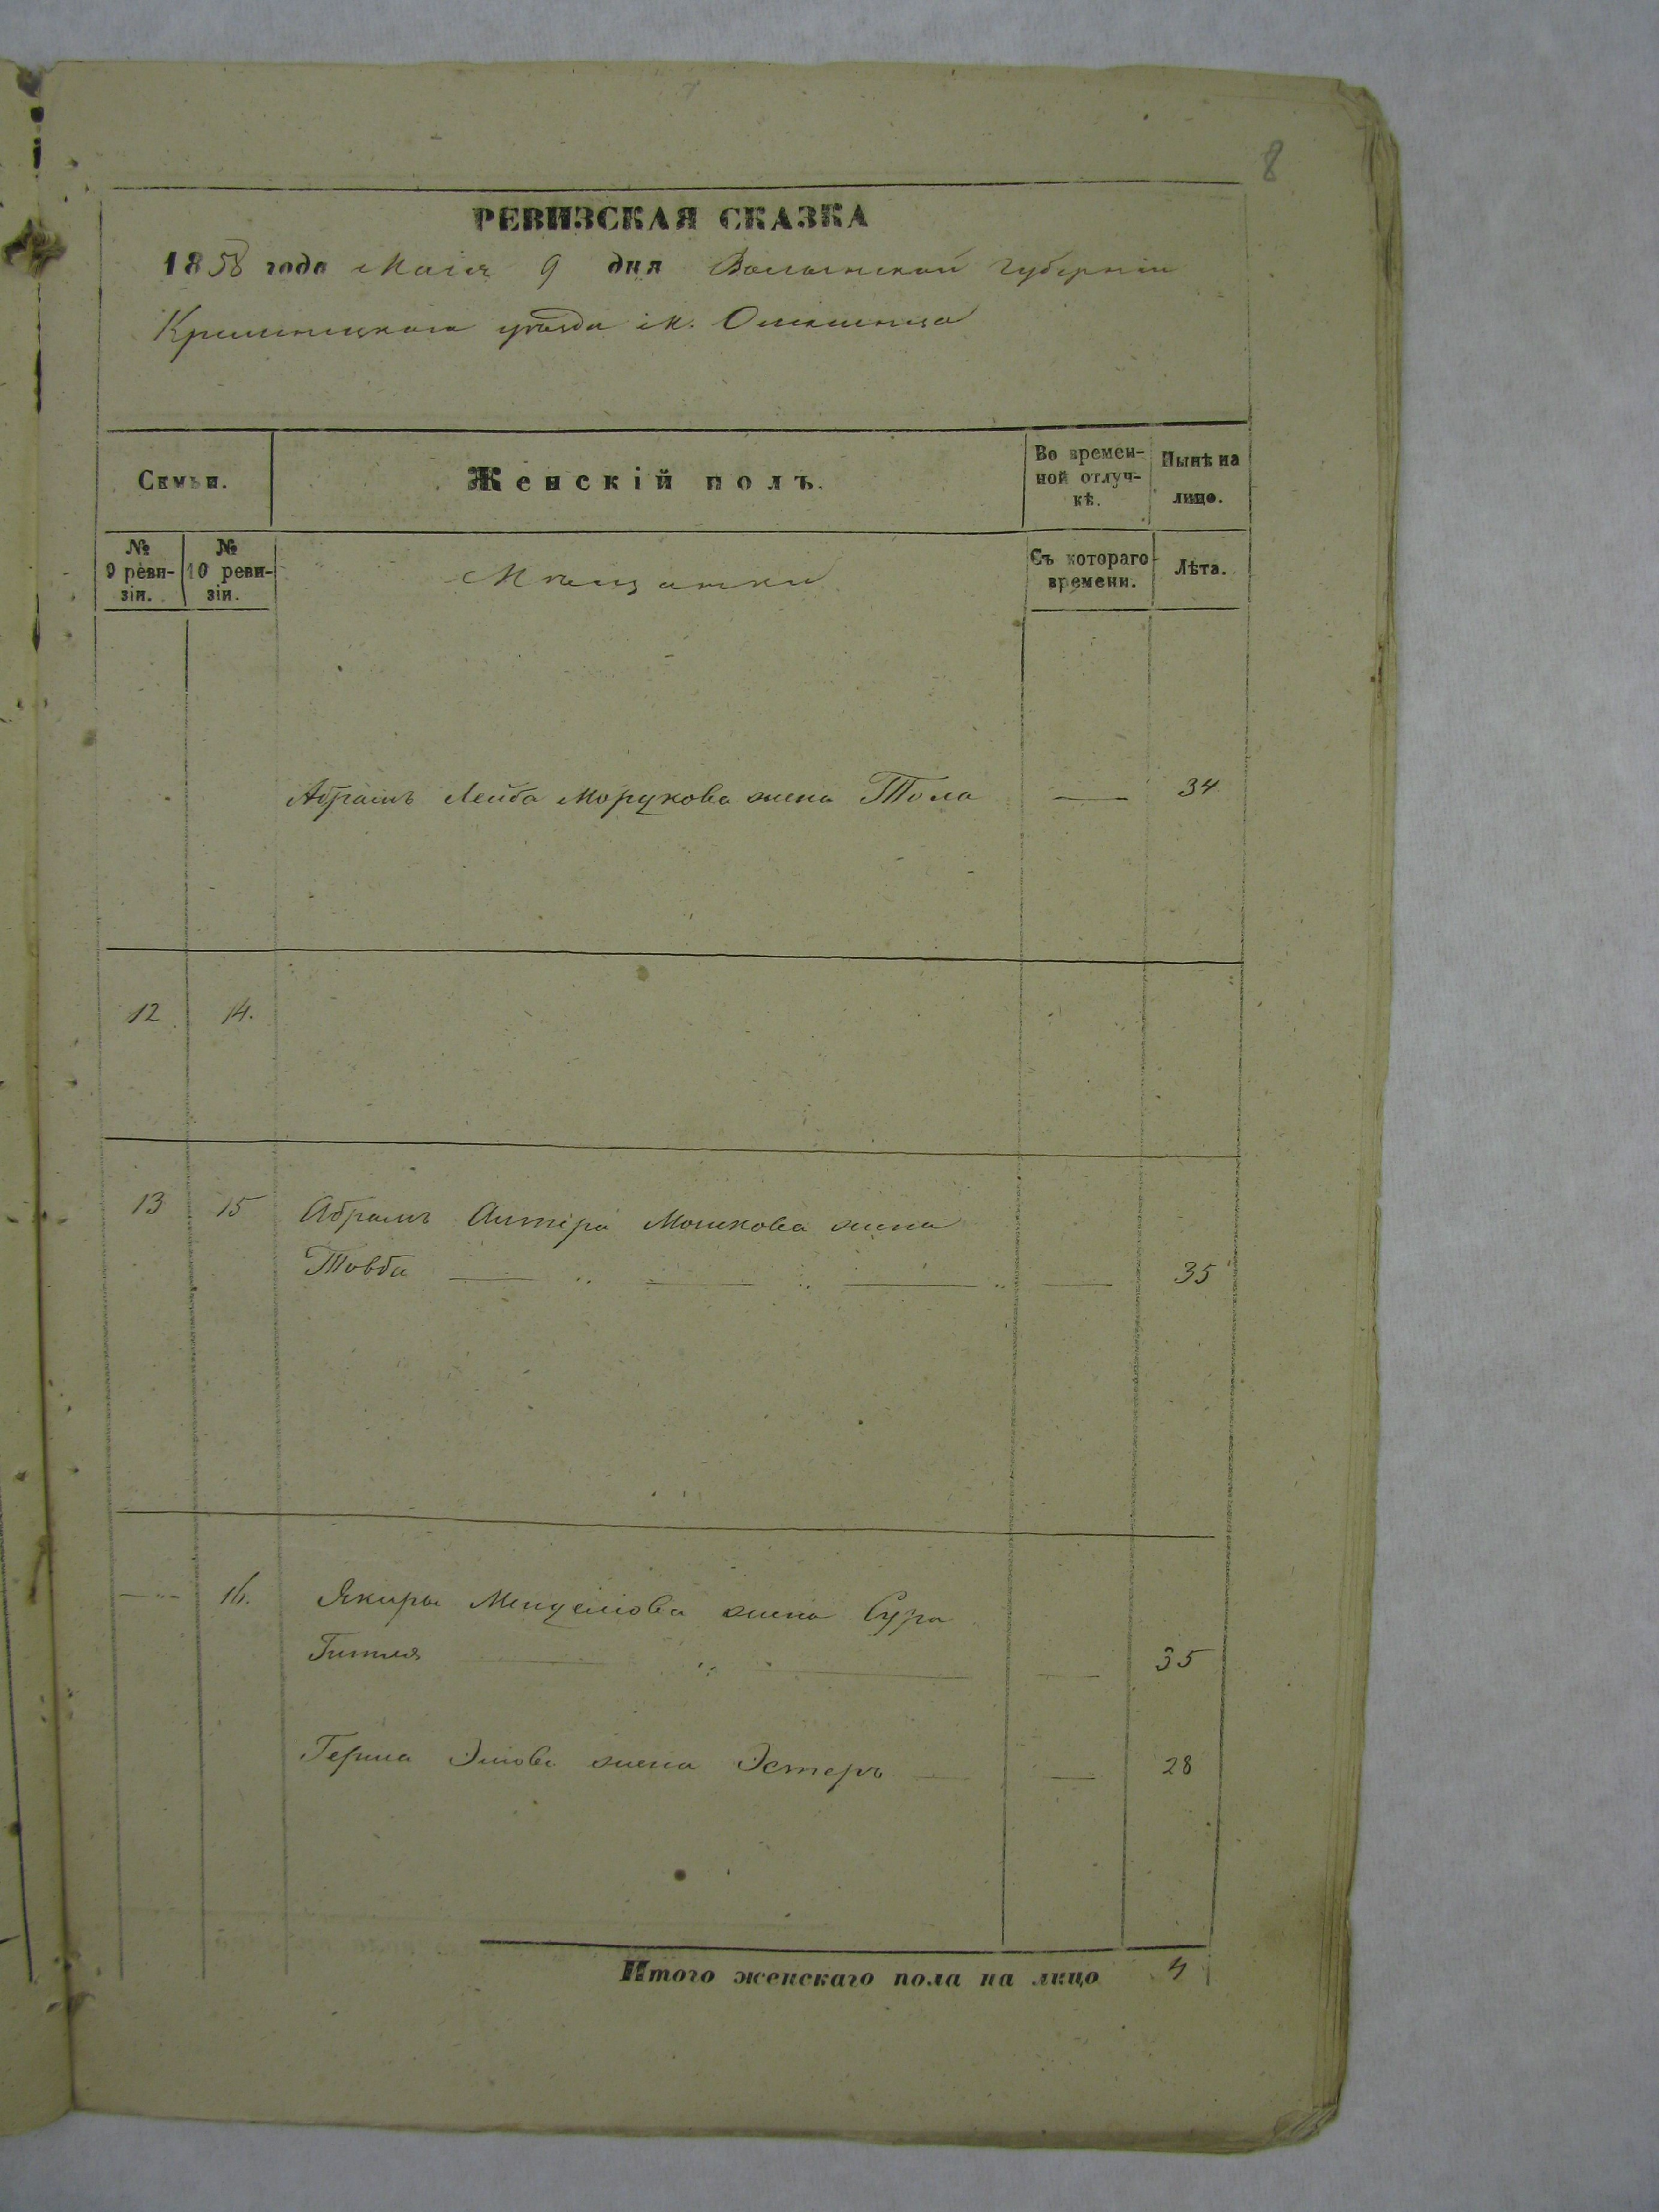 8
РЕВИЗСКАЯ СКАЗКА
1858 года Маія 9 дня Волынской губерніи
Кременецкого уѣзда м.
Семьи.
Женскій полъ.
Во времен-
ной отлуч-
кѣ.
Нынѣ на
лицо.
№
9 реви-
зіи.
№
10 реви-
зіи.
Мѣщанки
Съ котораго
времени.
Лѣта.
Абрамъ Лейба Морукова жена 34
12 14.
13 15 Абрамъ Алтера Мошкова жена
Товба 35
16. Якира Менделова жена Сура
Гитля 35
Герша жена Эстеръ 28
Итого женскаго пола на лицо 4